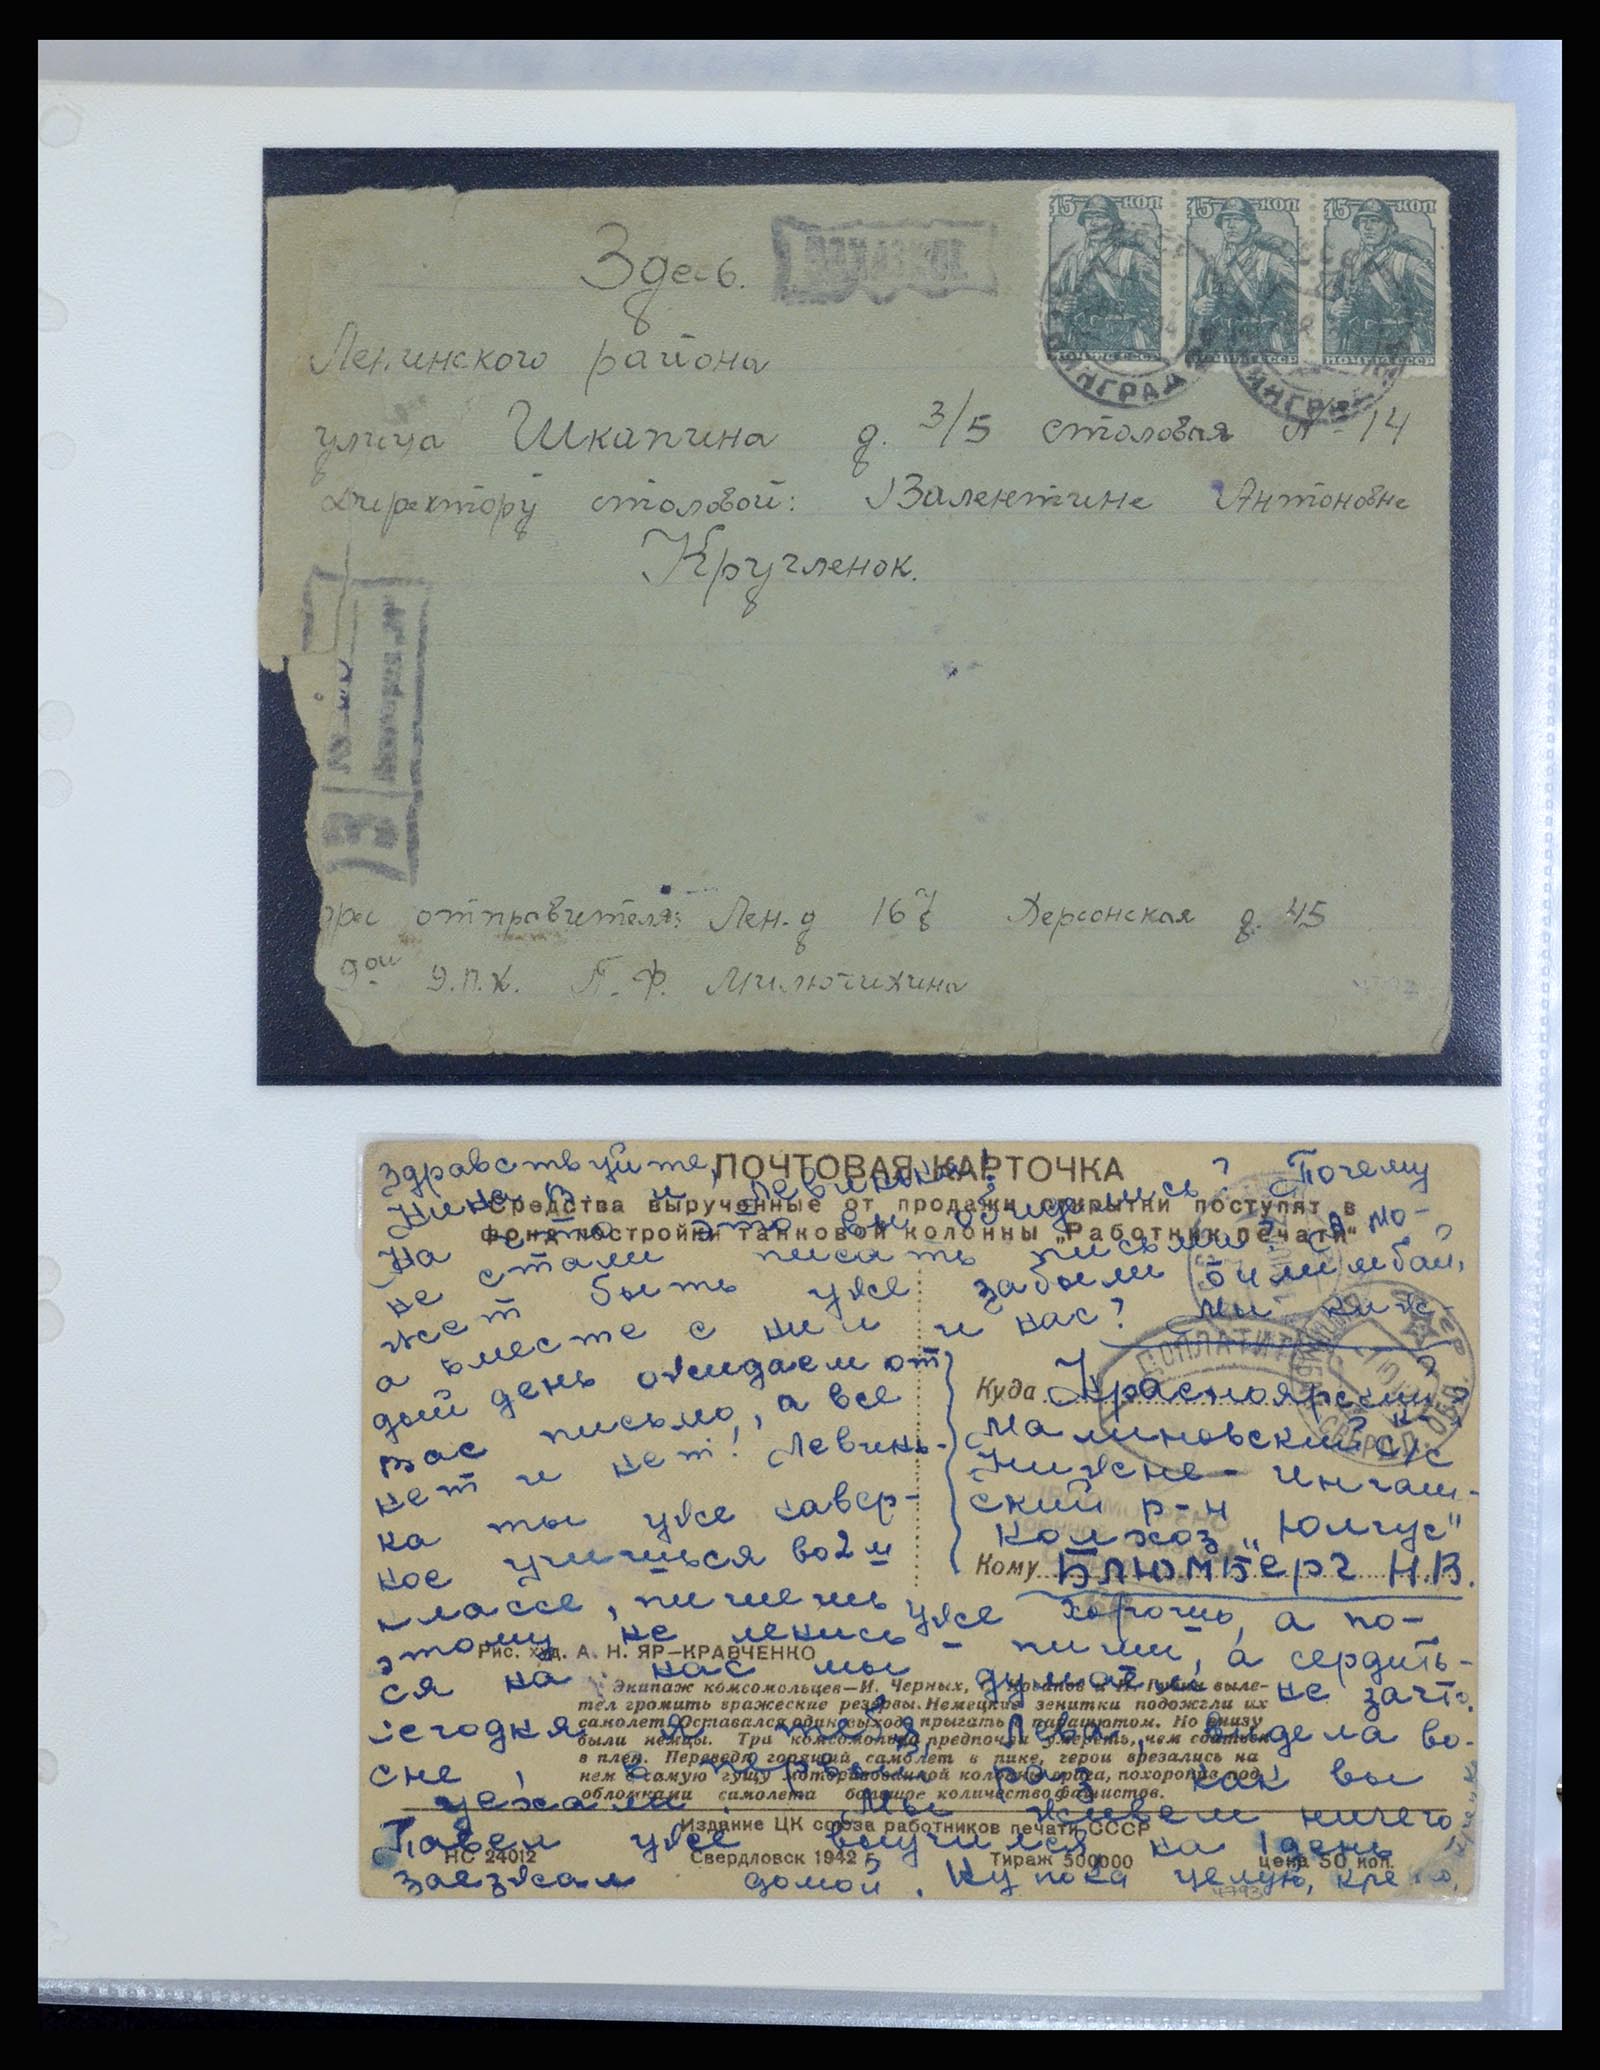 Здесь.
15 КОП 15 КОП 15 КОП
ПОЧТА СССР ПОЧТА СССР ПОЧТА СССР
Ленинского района
улица Шкапина д. 3/5 столовая № 14
Директору столовой: Валентине Антоновне
Кругленок.
рес отправителя: Лен-д 167 Херсонская д. 45
П. Ф. Милютихина
ПОЧТОВАЯ КАРТОЧКА
Средства вырученные от продажи открытки поступят в
фонд постройки танковой колонны „Работник печати“
Здравствуйте,
Нина В. и Левинька!
На что это вы обиделись? Почему
не стали писать письма? А мо-
жет быть уже забыли Билимбай,
а вместе с ним и нас? Мы каж-
дый день ожидаем от
вас письмо, а все
нет и нет! Левинь-
ка ты уже навер-
ное учишься во 2 м
классе, пишешь уже хорошо, а по-
этому не ленись - пиши, а сердить-
ся на нас мы думаем не зачто.
Сегодня я тебя, Лева, видела во-
сне, в первый раз как вы
уехали. Мы живем ничего
Павел уже выучился, на 1 день
заезжал домой. Ну пока целую, крепко,
ДОПЛАТИТЬ
Куда Красноярский к
Малиновский с/с
Нижне-Ингаш-
ский р-н
колхоз „Юлгус"
Кому Блюмберг Н.В.
Рис. худ. А. Н. ЯР-КРАВЧЕНКО
Экипаж комсомольцев—И. Черных, С. Косинов и Н. Губин выле-
тел громить вражеские резервы. Немецкие зенитки подожгли их
самолет. Оставался один выход: прыгать с парашютом. Но внизу
были немцы. Три комсомольца предпочли умереть, чем сдаться
в плен. Переведя горящий самолет в пике, герои врезались на
нем в самую гущу моторизованной колонны врага, похоронив под
обломками самолета большое количество фашистов.
Издание ЦК союза работников печати СССР
НС 24012 Свердловск 1942 г. Тираж 500000 цена 50 коп.
4793